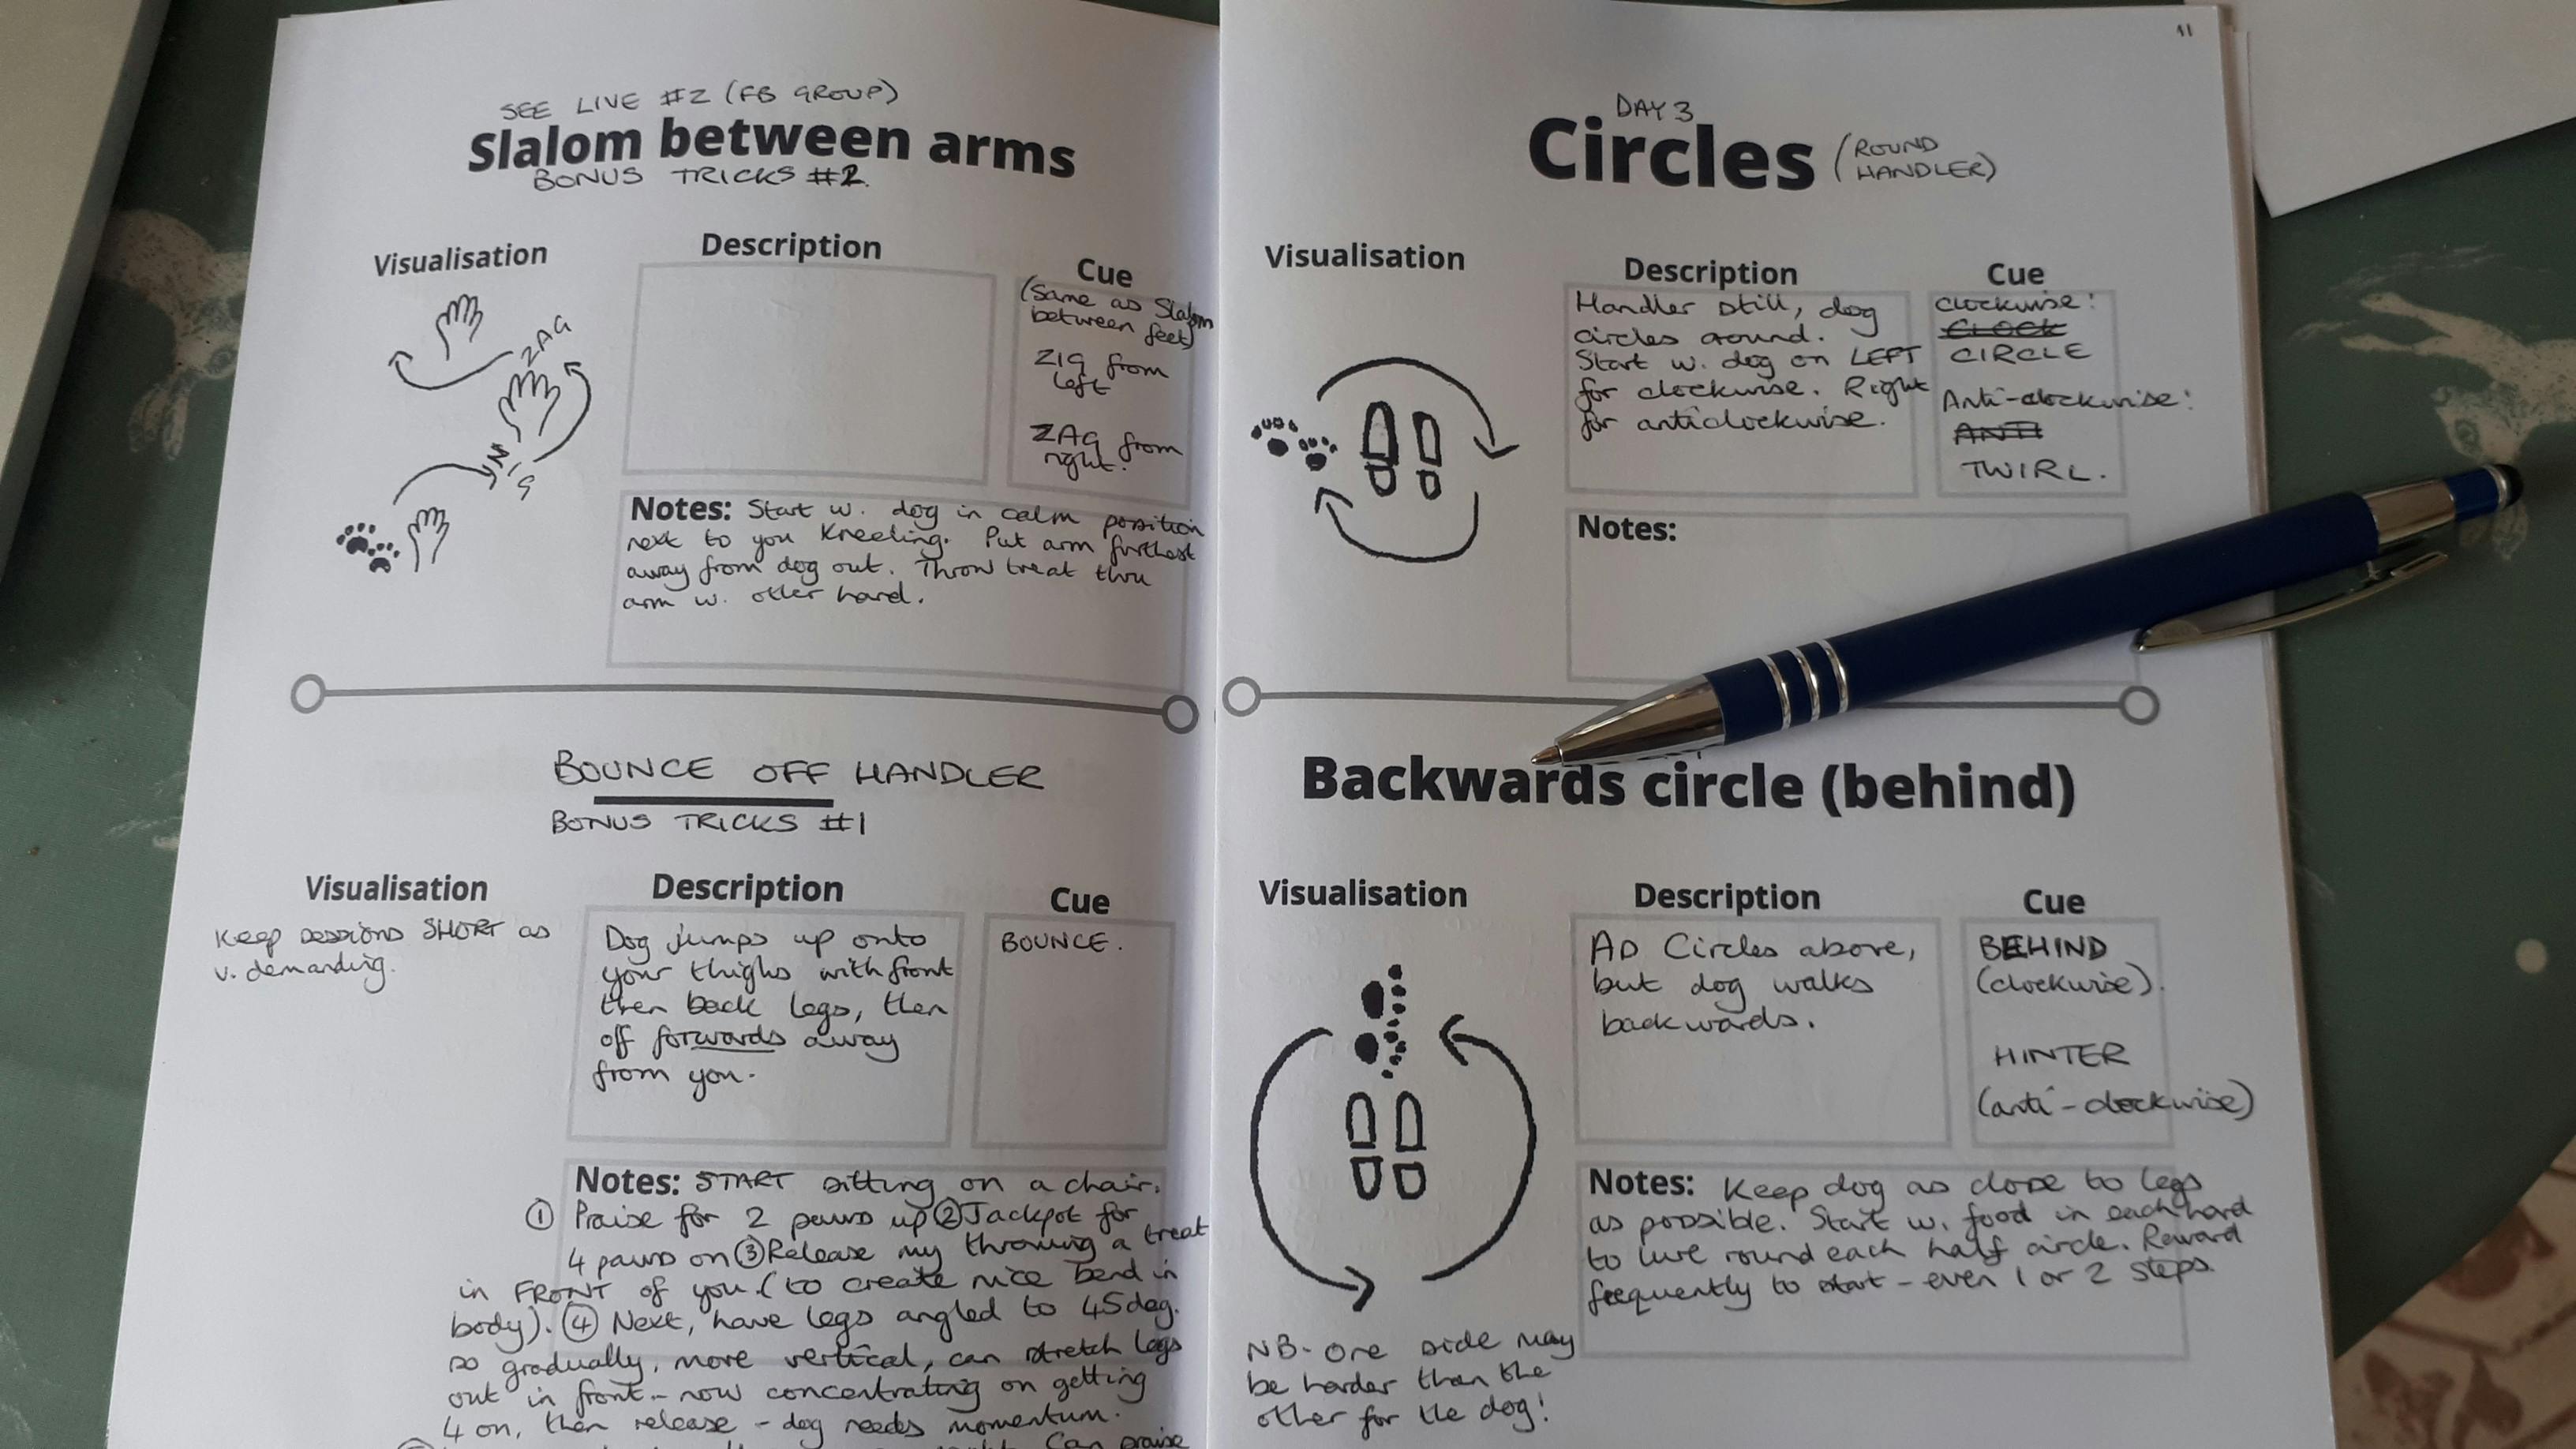 SEE LIVE #2 (FB GROUP)
Slalom between arms
BONUS TRICKS #2.
Visualisation
ZAG
ZIG
Description
Cue
(Same as Slalom
between feet)
ZIG from
left
ZAG from
right.
Notes: Start w. dog in calm position
next to you kneeling. Put arm furthest
away from dog out. Throw treat thru
arm w. other hand.
BOUNCE OFF HANDLER
BONUS TRICKS #1
Visualisation
Keep sessions SHORT as
v. demanding.
Description
Dog jumps up onto
your thighs with front
then back legs, then
off forwards away
from you.
Cue
BOUNCE.
Notes: START sitting on a chair.
① Praise for 2 paws up ② Jackpot for
4 paws on ③ Release my throwing a treat
in FRONT of you. (to create nice bend in
body). ④ Next, have legs angled to 45deg.
so gradually, more vertical, can stretch legs
out in front - now concentrating on getting
4 on, then release - dog needs momentum.
Can praise
11
DAY 3
Circles (ROUND
HANDLER)
Visualisation
Description
Handler still, dog
circles around.
Start w. dog on LEFT
for clockwise. Right
for anticlockwise.
Cue
Clockwise:
CLOCK
CIRCLE
Anti-clockwise:
ANTI
TWIRL.
Notes:
Backwards circle (behind)
Visualisation
NB- One side may
be harder than the
other for the dog!
Description
As Circles above,
but dog walks
backwards.
Cue
BEHIND
(clockwise).
HINTER
(anti-clockwise)
Notes: Keep dog as close to legs
as possible. Start w. food in each hand
to lure round each half circle. Reward
frequently to start - even 1 or 2 steps.